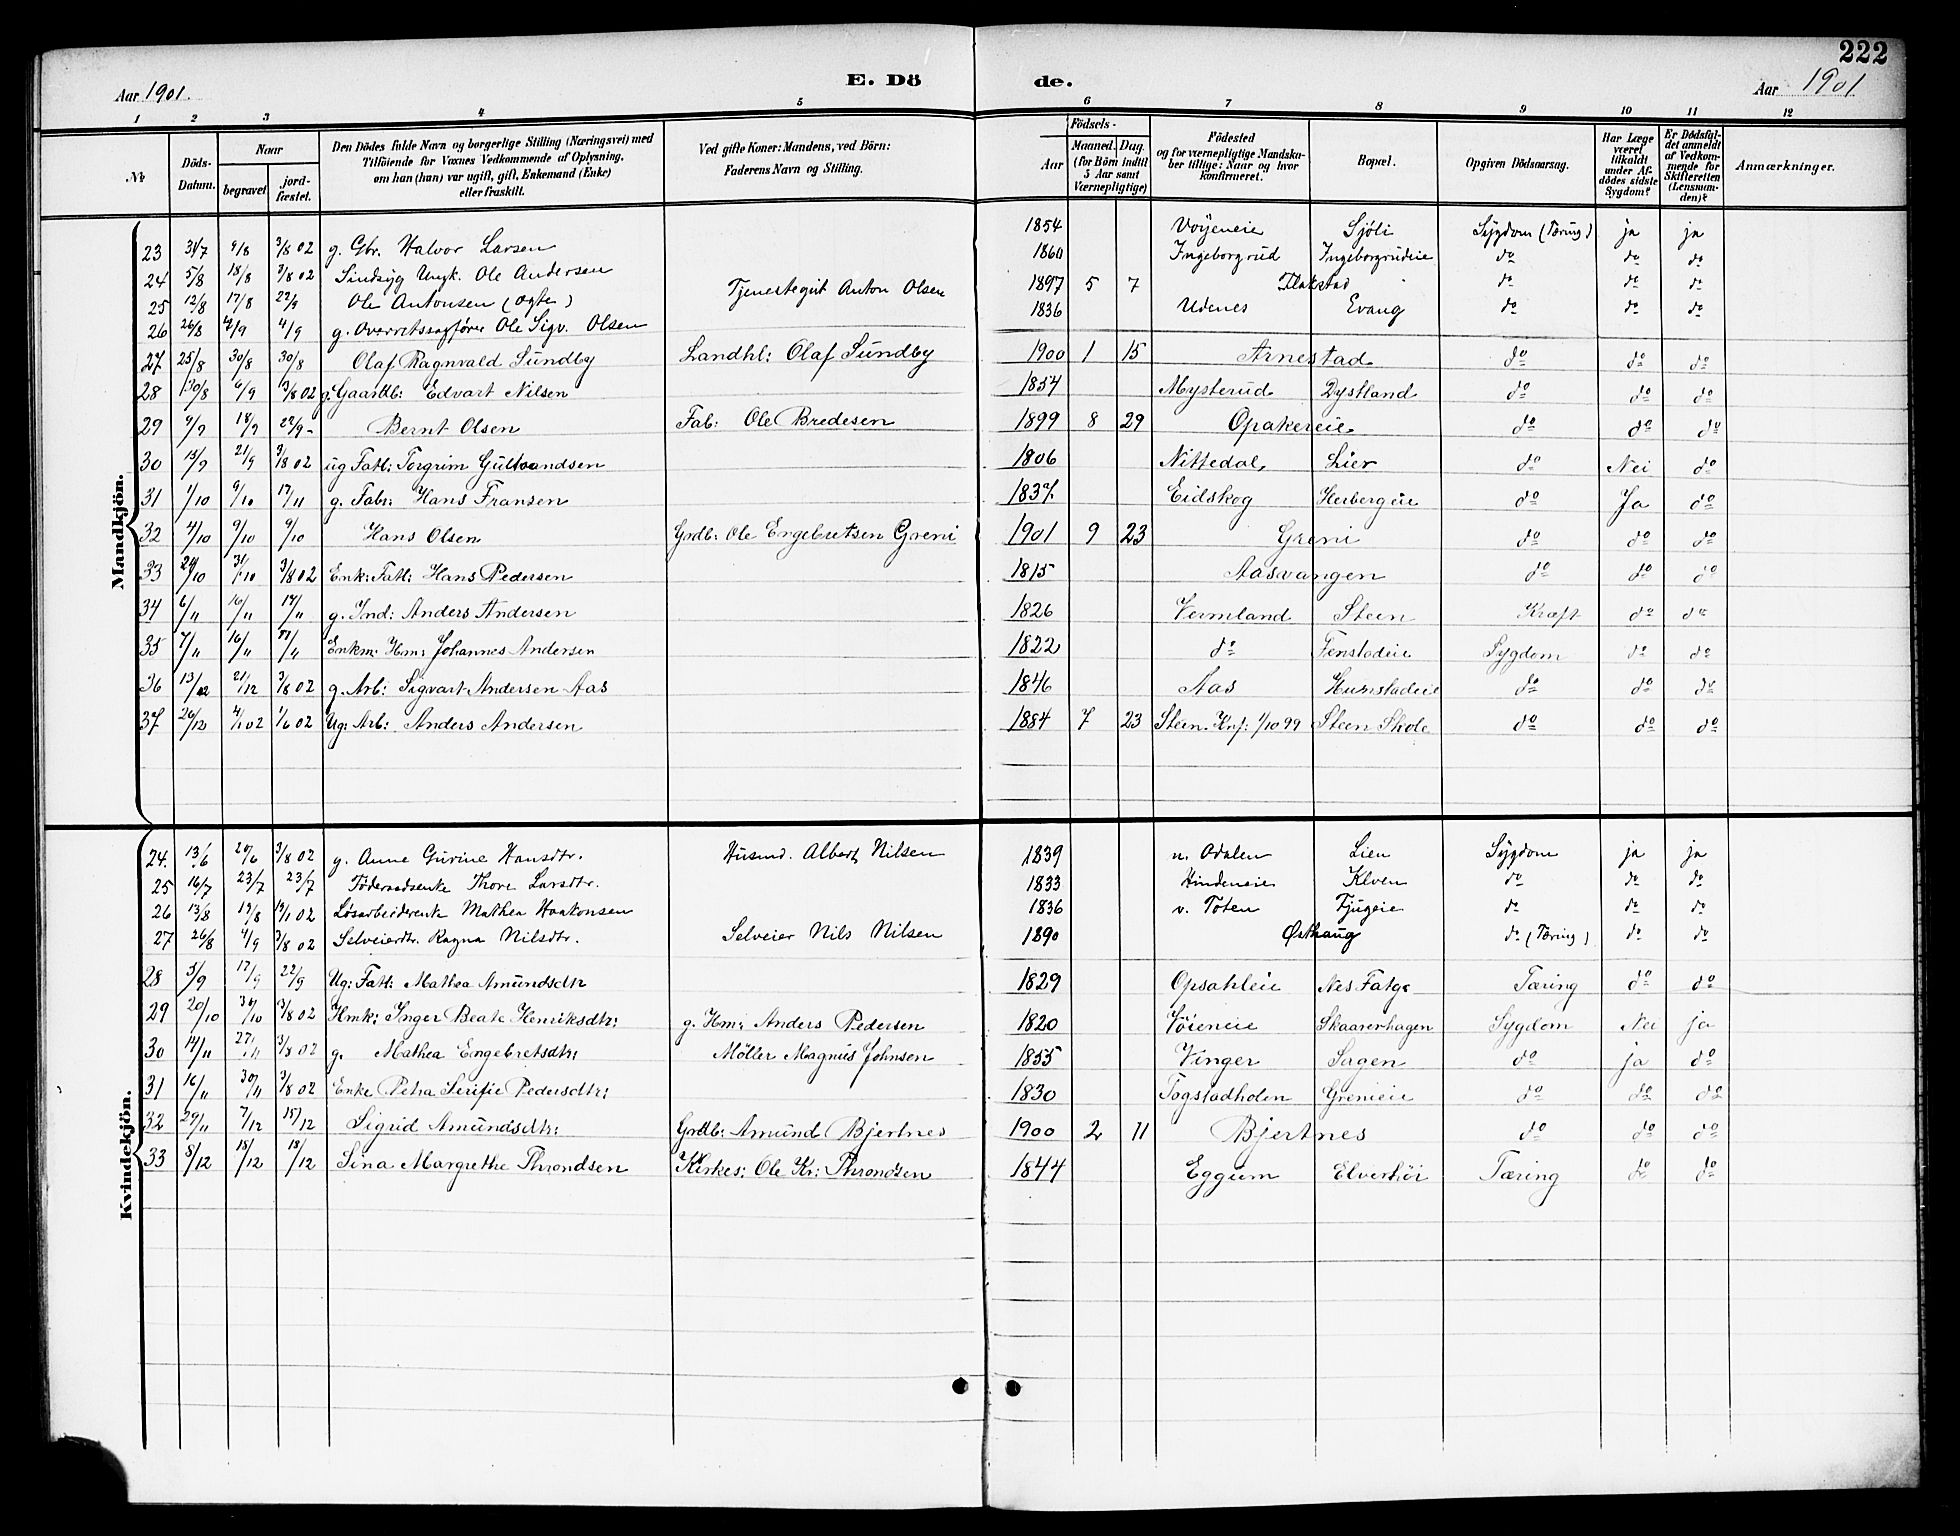 222
Aar 1901.
E. Dö de.
Aar 1901
1 2 3 4 5 6 7 8 9 10 11 12
No
Döds-Datum.
Naar
begravet
jord-fæstet.
Den Dödes fulde Navn og borgerlige Stilling (Næringsvei) med Tilföiende for Voxnes Vedkommende af Oplysning, om han (hun) var ugift, gift, Enkemand (Enke) eller fraskilt.
Ved gifte Koner: Mandens, ved Börn: Faderens Navn og Stilling.
Födsels-
Aar
Maaned. Dag.
(for Börn indtil 5 Aar samt Værnepligtige)
Födested og for værnepligtige Mandskaber tillige: Naar og hvor konfirmeret.
Bopæl.
Opgiven Dödsaarsag.
Har Læge været tilkaldt under Afdödes sidste Sygdom?
Er Dödsfaldet anmeldt af Vedkommende for Skifteretten (Lensmanden)?
Anmærkninger.
Mandkjön.
23 31/7 9/8 3/8 02 g. Gbr. Halvor Larsen 1854 Vöyeneie Sjöli Sygdom (Tæring) ja ja
24 5/8 18/8 3/8 02 Sindsyg Ungk. Ole Andersen 1860 Ingeborgrud Ingeborgrudeie do do do
25 12/8 17/8 22/9 Ole Antonsen (ægte) Tjenestegut Anton Olsen 1897 5 7 Flakstad do do do
26 26/8 4/9 4/9 g. Overretssagförer Ole Sigv. Olsen 1836 Udenes Evang do do do
27 25/8 30/8 30/8 Olaf Ragnvald Sundby Landhl: Olaf Sundby 1900 1 15 Arnestad do do do
28 30/8 6/9 3/8 02 g. Gaardb: Edvart Nilsen 1854 Mysterud Dystland do do do
29 9/9 18/9 22/9 Bernt Olsen Fab: Ole Bredesen 1899 8 29 Opakereie do do do
30 13/9 21/9 3/8 02 ug Fatl: Torgrim Gulbrandsen 1806 Nittedal Lier do Nei do
31 1/10 9/10 17/11 g. Fabr: Hans Fransen 1837 Eidskog Herbergeie do Ja do
32 4/10 9/10 9/10 Hans Olsen Grdb: Ole Engebretsen Greni 1901 9 23 Greni do do do
33 24/10 31/10 3/8 02 Enk: Fatl: Hans Pedersen 1815 Aasvangen do do do
34 6/11 16/11 17/11 g. Ind: Anders Andersen 1826 Vermland Steen Kræft do do
35 7/11 16/11 17/11 Enkm: Hm: Johannes Andersen 1822 do Fenstadeie Sygdom do do
36 13/12 21/12 3/8 02 g. Arb: Sigvart Andersen Aas 1846 Aas Hunstadeie do do do
37 26/12 4/1 02 1/6 02 Ug: Arb: Anders Andersen 1884 7 23 Steen. Knf: 1/10 99 Steen Skole do do do
Kvindekjön.
24. 13/6 20/6 3/8 02 g. Anne Gurine Hansdtr. Husmd. Albert Nilsen 1839 n. Odalen Lien Sygdom ja ja
25 16/7 23/7 23/7 Föderaadsenke Thore Larsdtr. 1833 Hindeneie Kloen do do do
26 13/8 19/8 19/1 02 Lösarbeiderenke Mathea Haakonsen 1836 v. Toten Fjugeie do do do
27 26/8 4/9 3/8 02 Selveierdtr. Ragna Nilsdtr. Selveier Nils Nilsen 1890 Østhaug do (Tæring) do do
28 3/9 17/9 22/9 Ug: Fatl: Mathea Amundsdtr 1829 Opsahleie Nes Fatg. Tæring do do
29 20/10 30/10 3/8 02 Hmk: Inger Beate Henriksdtr: g. Hm: Anders Pedersen 1820 Vöieneie Skaarerhagen Sygdom Nei ja
30 14/11 27/11 3/8 02 g. Mathea Engebretsdtr: Möller Magnus Johnsen 1855 Vinger Sagen do ja do
31 16/11 30/11 3/8 02 Enke Petra Serifie Pedersdtr: 1830 Togstadholen Grenieie do do do
32 29/11 7/12 15/12 Sigrid Amundsdtr: Grdb: Amund Bjertnes 1900 2 11 Bjertnes do do do
33 8/12 18/12 18/12 Sina Margrethe Throndsen Kirkes: Ole Kr: Throndsen 1844 Eggum Elverhöi Tæring do do